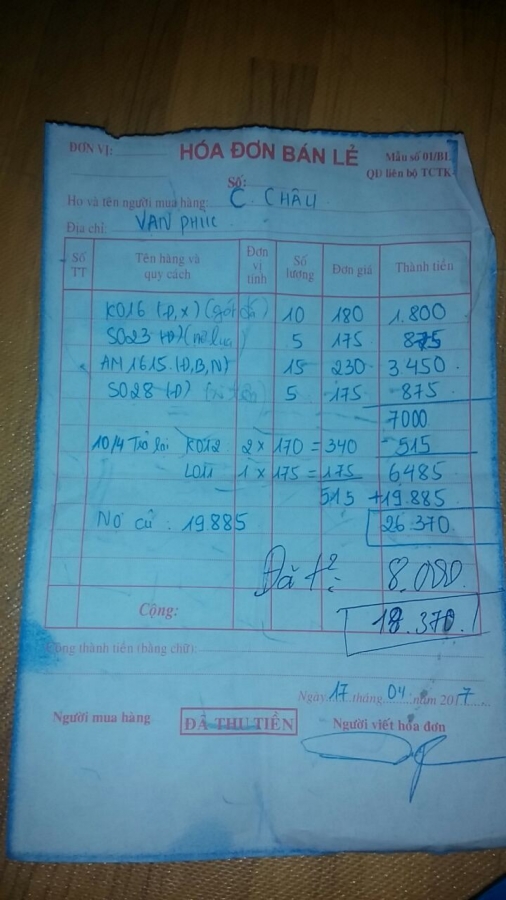 ĐƠN VỊ:
HÓA ĐƠN BÁN LẺ
Mẫu số 01/BL
QĐ liên bộ TCTK
Số:
Họ và tên người mua hàng: C. CHÂU
Địa chỉ: VẠN PHÚC
Số TT Tên hàng và quy cách Đơn vị tính Số lượng Đơn giá Thành tiền
K016 (Đ,X) 10 180 1.800
S023 (Đ) 5 175 875
AM1615.(Đ,B,N) 15 230 3450
S028 (Đ) 5 175 875
7000
10/4 Trả lại K012 2 x 170 = 340 - 515
1 x 175 = 175 6485
515 + 19.885
Nợ cũ : 19885 26.370
Đã t²: 8.000
Cộng: 18.370.
Cộng thành tiền (bằng chữ):
Ngày 17 tháng 04 năm 2017
Người mua hàng ĐÃ THU TIỀN Người viết hóa đơn